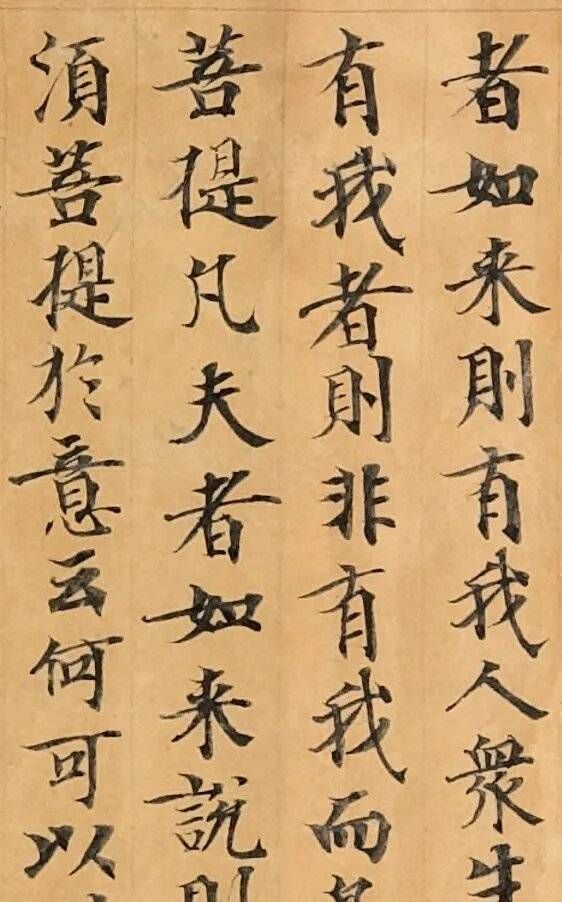 者如来則有我人衆生
有我者則非有我而
菩提凡夫者如来說則
須菩提於意云何可以